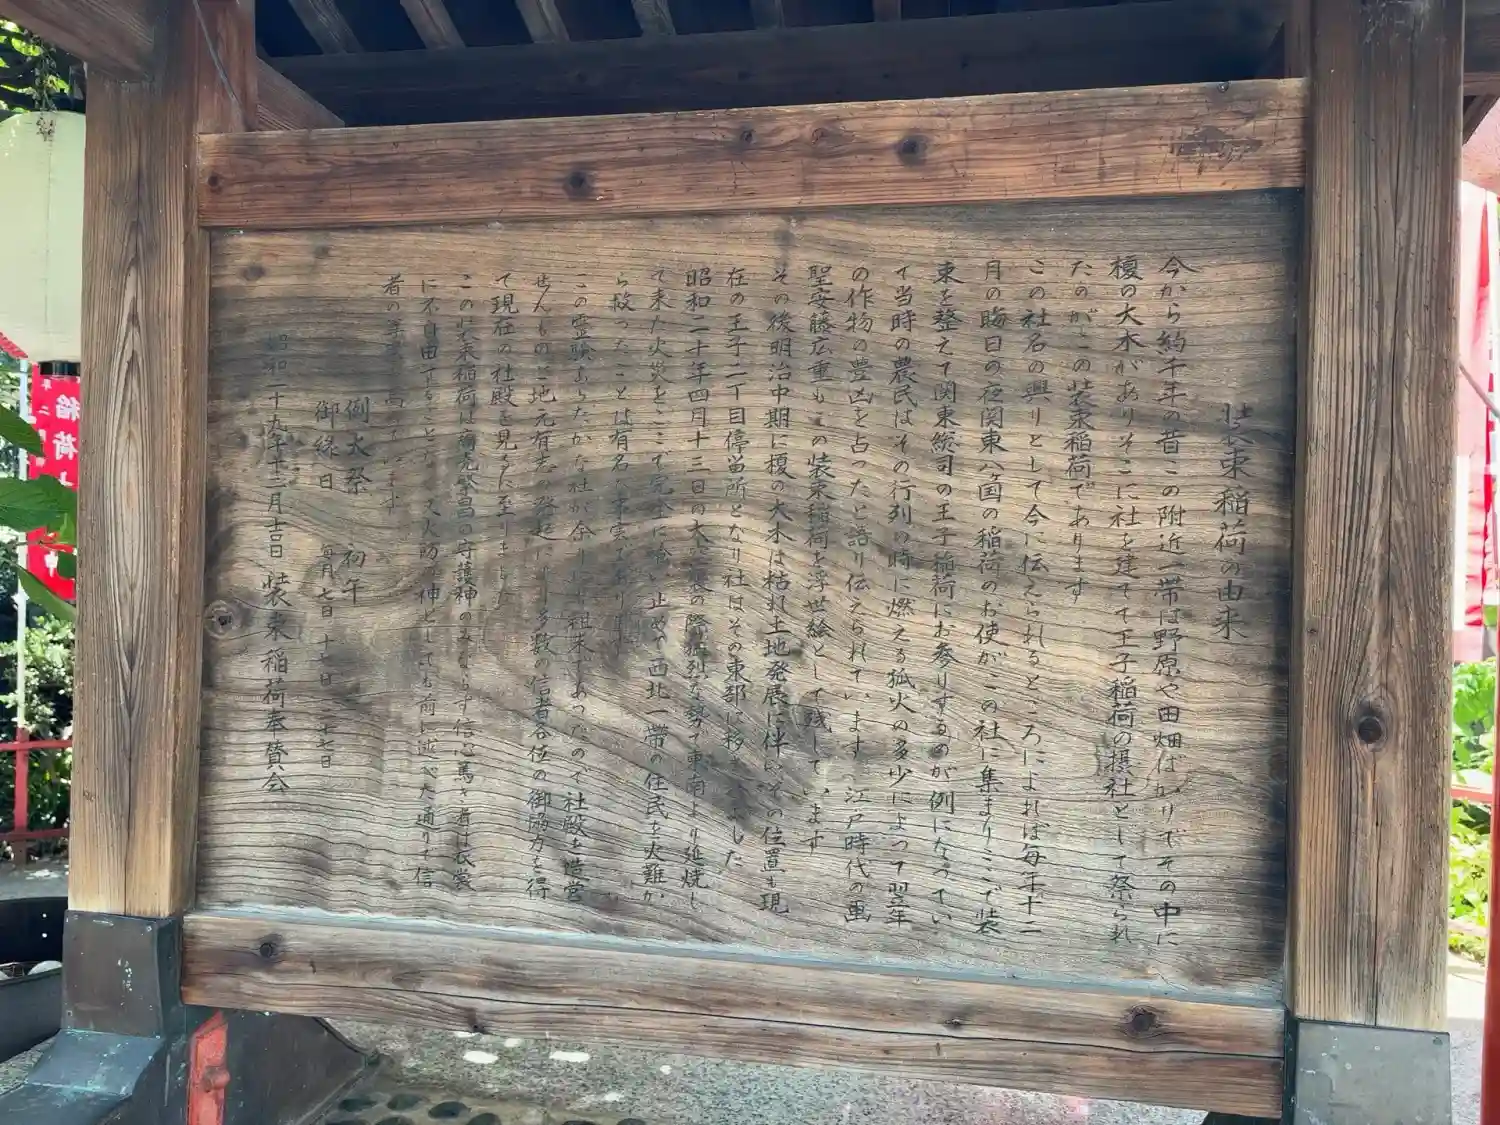 装束稲荷の由来
今から約千年の昔この附近一帯は野原や田畑ばかりでその中に
榎の大木がありそこに社を建てて王子稲荷の摂社として祭られ
たのがこの装束稲荷であります
この社名の興りとして今に伝えられるところによれば毎年十二
月の晦日の夜関東八ヶ国の稲荷のお使がこの社に集まりここで装
束を整えて関東総司の王子稲荷にお参りするのが例になってい
て当時の農民はその行列の時に燃える狐火の多少によって翌年
の作物の豊凶を占ったと語り伝えられています江戸時代の画
聖安藤広重もこの装束稲荷を浮世絵として残しています
その後明治中期に榎の大木は枯れ土地発展に伴いその位置も現
在の王子二丁目停留所となり社はその東部に移されました
昭和二十年四月十三日の大空襲の際猛烈な勢で東南より延焼し
て来た火災をここで完全に喰い止めて西北一帯の住民を火難か
ら救ったことは有名な事実であります
この霊験あらたかな社が余りにも粗末であったので社殿を造営
せんものと地元有志の発起により多数の信者各位の御協力を得
て現在の社殿を見るに至りました
この装束稲荷は商売繁昌の守護神のみならず信心篤き者は衣裳
に不自由することなく又火防の神としても前に述べた通りで信
者の
高
例大祭 初午
御縁日 毎月 七日 十七日 二十七日
昭和二十九年十二月吉日 装束稲荷奉賛会
稲荷